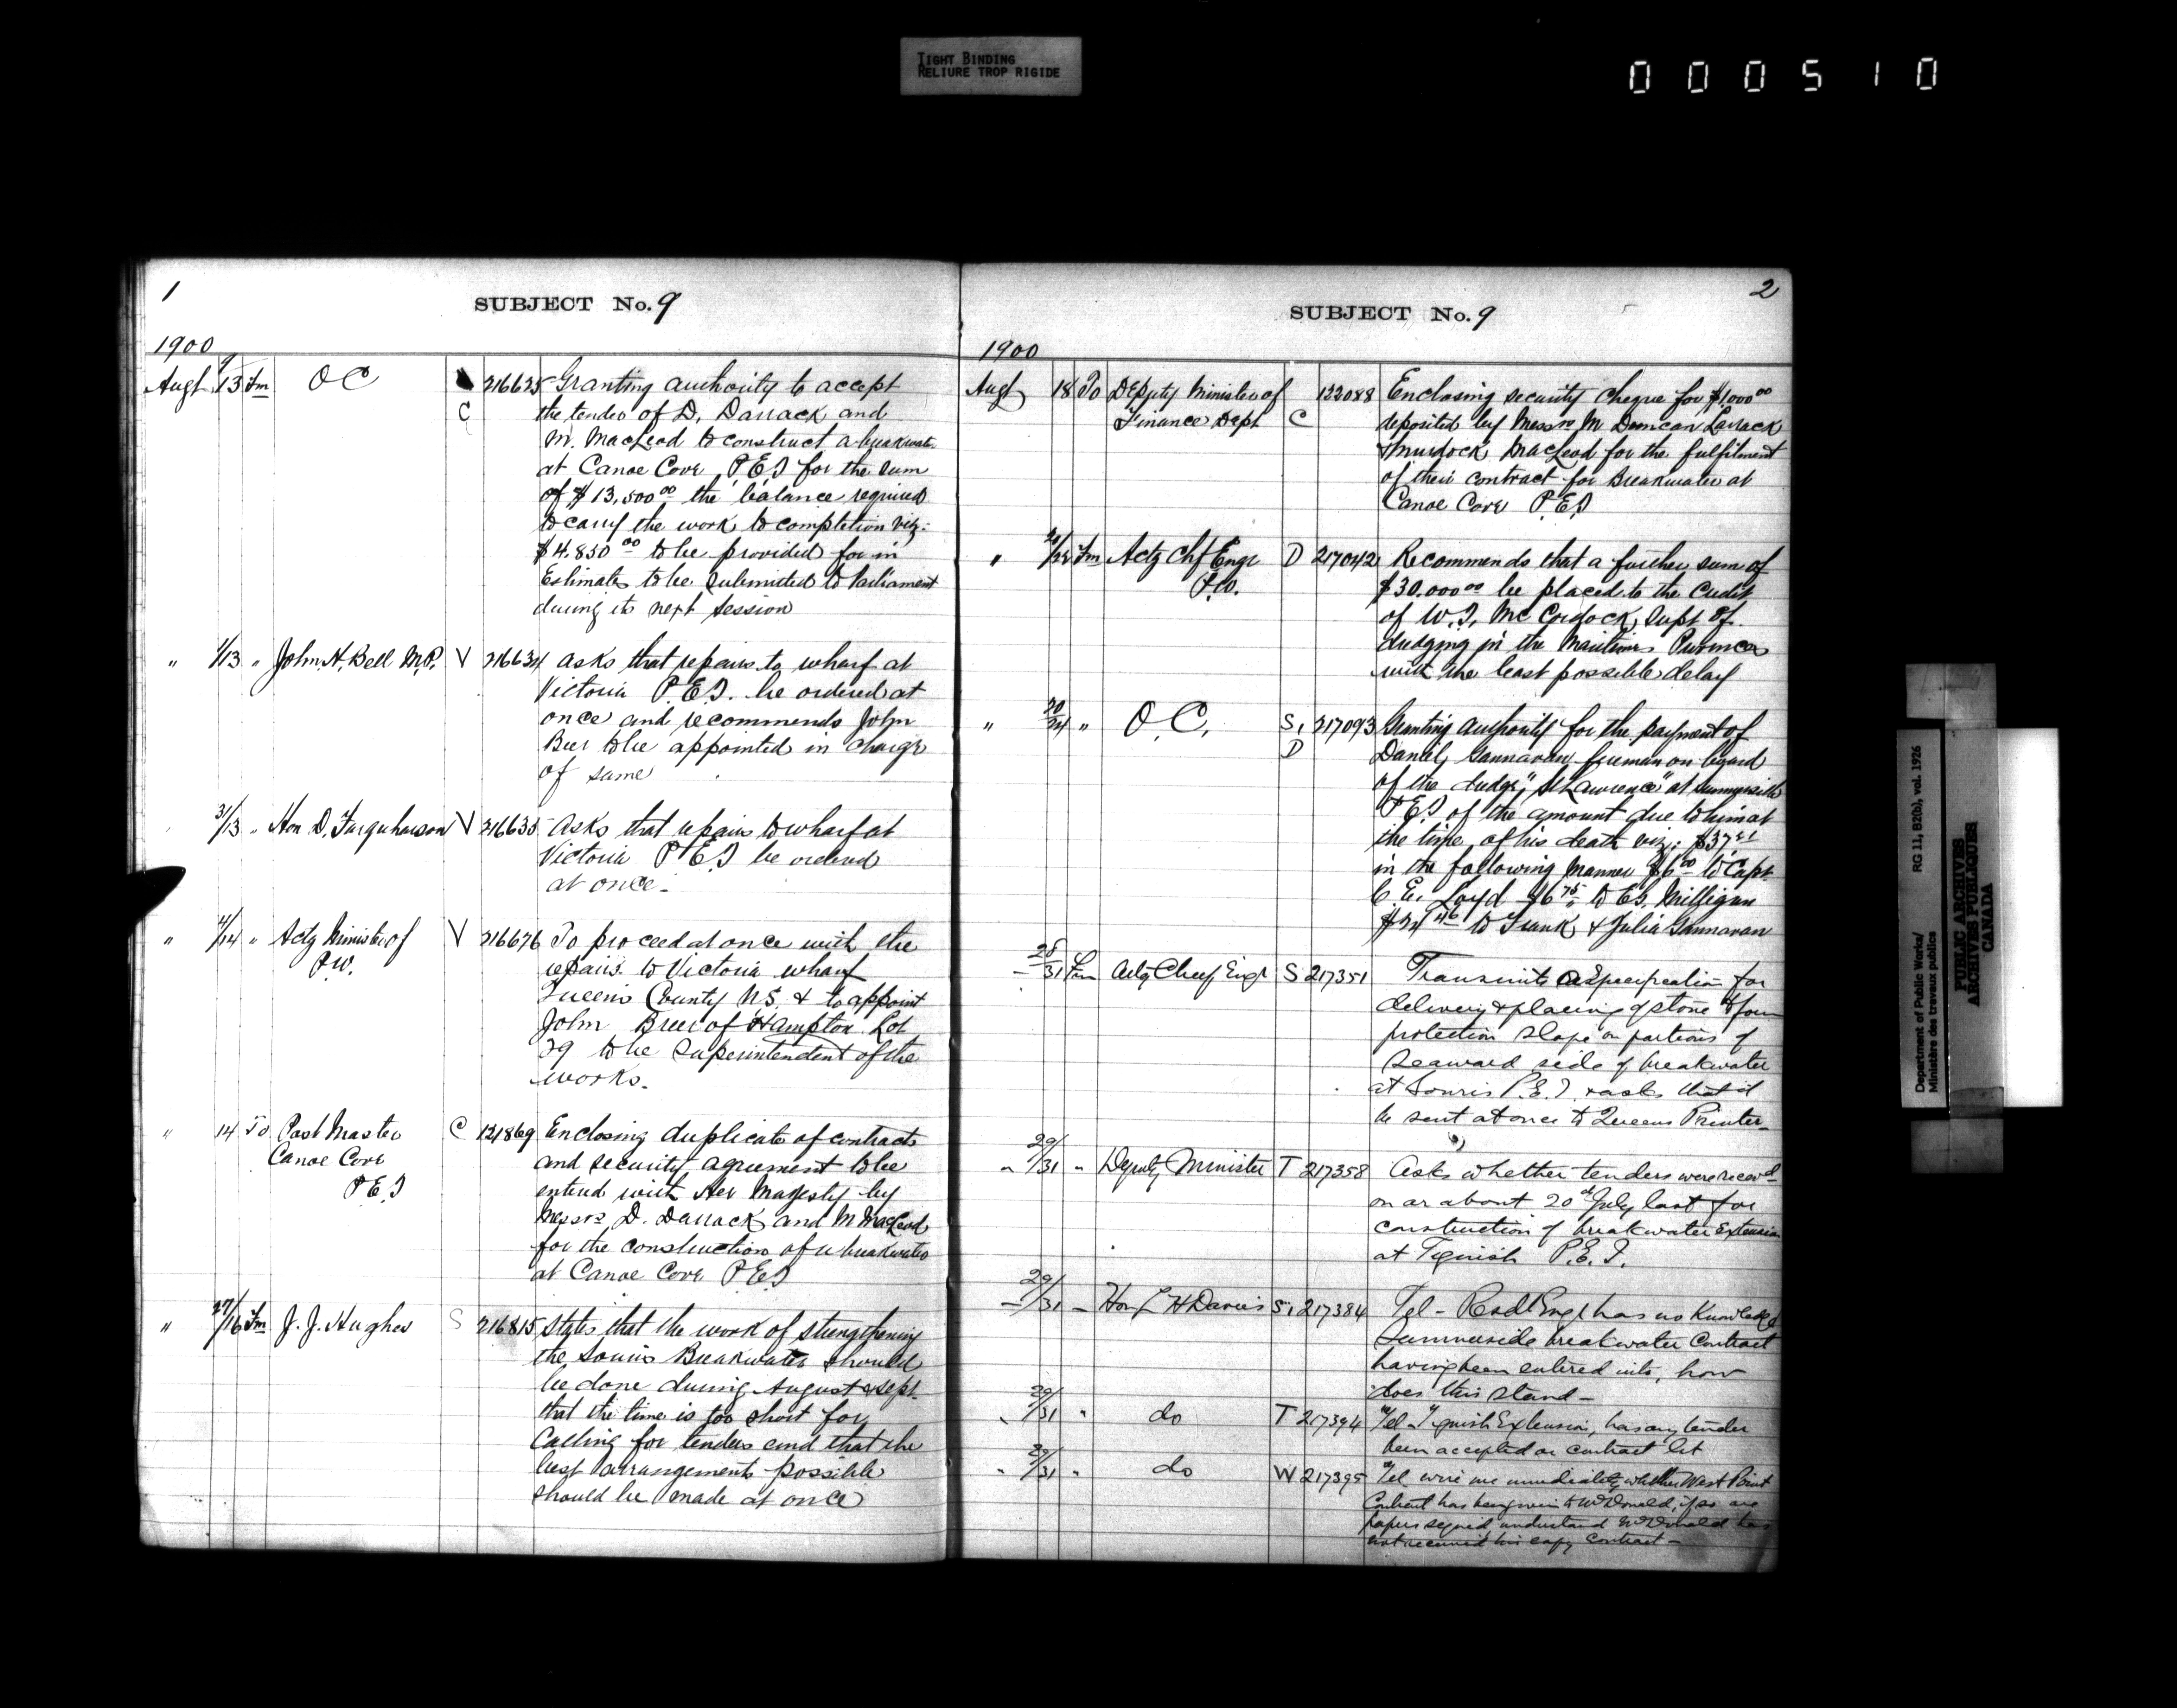 TIGHT BINDING
RELIURE TROP RIGIDE
000510
1
SUBJECT No. 9
1900
Augt 9/13 Fm O C C 216625 Granting authority to accept
the tender of D. Darrack and
M. MacLeod to construct a breakwater
at Canoe Cove, P.E.I for the sum
of $13,500 00 the balance required
to carry the work to completion viz:
$4.850 00 to be provided for in
Estimates to be submitted to Parliament
during its next session
" 1/13 " John H. Bell M.P. V 216634 asks that repairs to wharf at
Victoria P.E.I. be ordered at
once and recommends John
Beer to be appointed in charge
of same
3/13 " Hon D. Farquharson V 216635 Asks that repairs to wharf at
Victoria P E I be ordered
at once.
" 4/14 " Actg Minister of V 216676 To proceed at once with the
P.W. repairs to Victoria wharf
Queens County N.S. & to appoint
John Beer of Hampton Lot
29 to be Superintendent of the
works.
" 14 To Post Master C 121869 Enclosing duplicate of contracts
Canoe Cove and security agreement to be
P E I entered with Her Majesty by
Messrs D. Darrack and M MacLeod
for the construction of a breakwater
at Canoe Cove P E I
" 27/16 Fm J. J. Hughes S 216815 States that the work of strengthening
the Souris Breakwater should
be done during August & Sept.
that the time is too short for
calling for tenders and that the
best arrangements possible
should be made at once
2
SUBJECT No. 9
1900
Augt 18 To Deputy Minister of 122088 Enclosing security cheque for $1,000 00
Finance Dept C deposited by Messrs M Duncan Darrack
& Murdock MacLeod for the fulfilment
of their contract for Breakwater at
Canoe Cove P.E.I
" /22 Fm Actg Chf Engr D 217042 Recommends that a further sum of
P.W. $30.000 00 be placed to the credit
of W. J. Mc Cordock, Supt of
dredging in the Maritime Provinces
with the least possible delay
" 20/24 " O.C. S, 217093 Granting authority for the payment of
D Daniel Gannavan fireman on board
of the dredge, "St Lawrence" at Summerside
P E I of the amount due to him at
the time of his death viz: $37
in the following manner $6 00 to Capt.
C. E. Loyd $6 75 to E.S. Milligan
to Frank & Julia Gannavan
- 28/31 Fm Actg Chief Engr S 217351 Transmits specification for
delivery & placing of stone
protection slope on portions of
seaward side of breakwater
at Souris P.E.I. & asks that it
be sent at once to Queens Printer
" 29/31 " Deputy Minister T 217358 Asks whether tenders were recevd
on or about 20th July last for
construction of breakwater Extension
at Tignish P.E.I.
- 29/31 - Hon L H Davies S, 217384 Tel - Resdt Engr has no knowledge
Summerside breakwater Contract
having been entered into, how
does this stand -
" 29/31 " do T 217394 Tel - Tignish Extension, has any tender
been accepted or contract let
" 29/31 " do W 217395 Tel wire me immediately whether West Point
Contract has been given to McDonald, if so are
papers signed, understand McDonald has
not received his copy Contract -
Department of Public Works/ RG 11, B2(b), vol. 1926
Ministère des travaux publics
PUBLIC ARCHIVES
ARCHIVES PUBLIQUES
CANADA